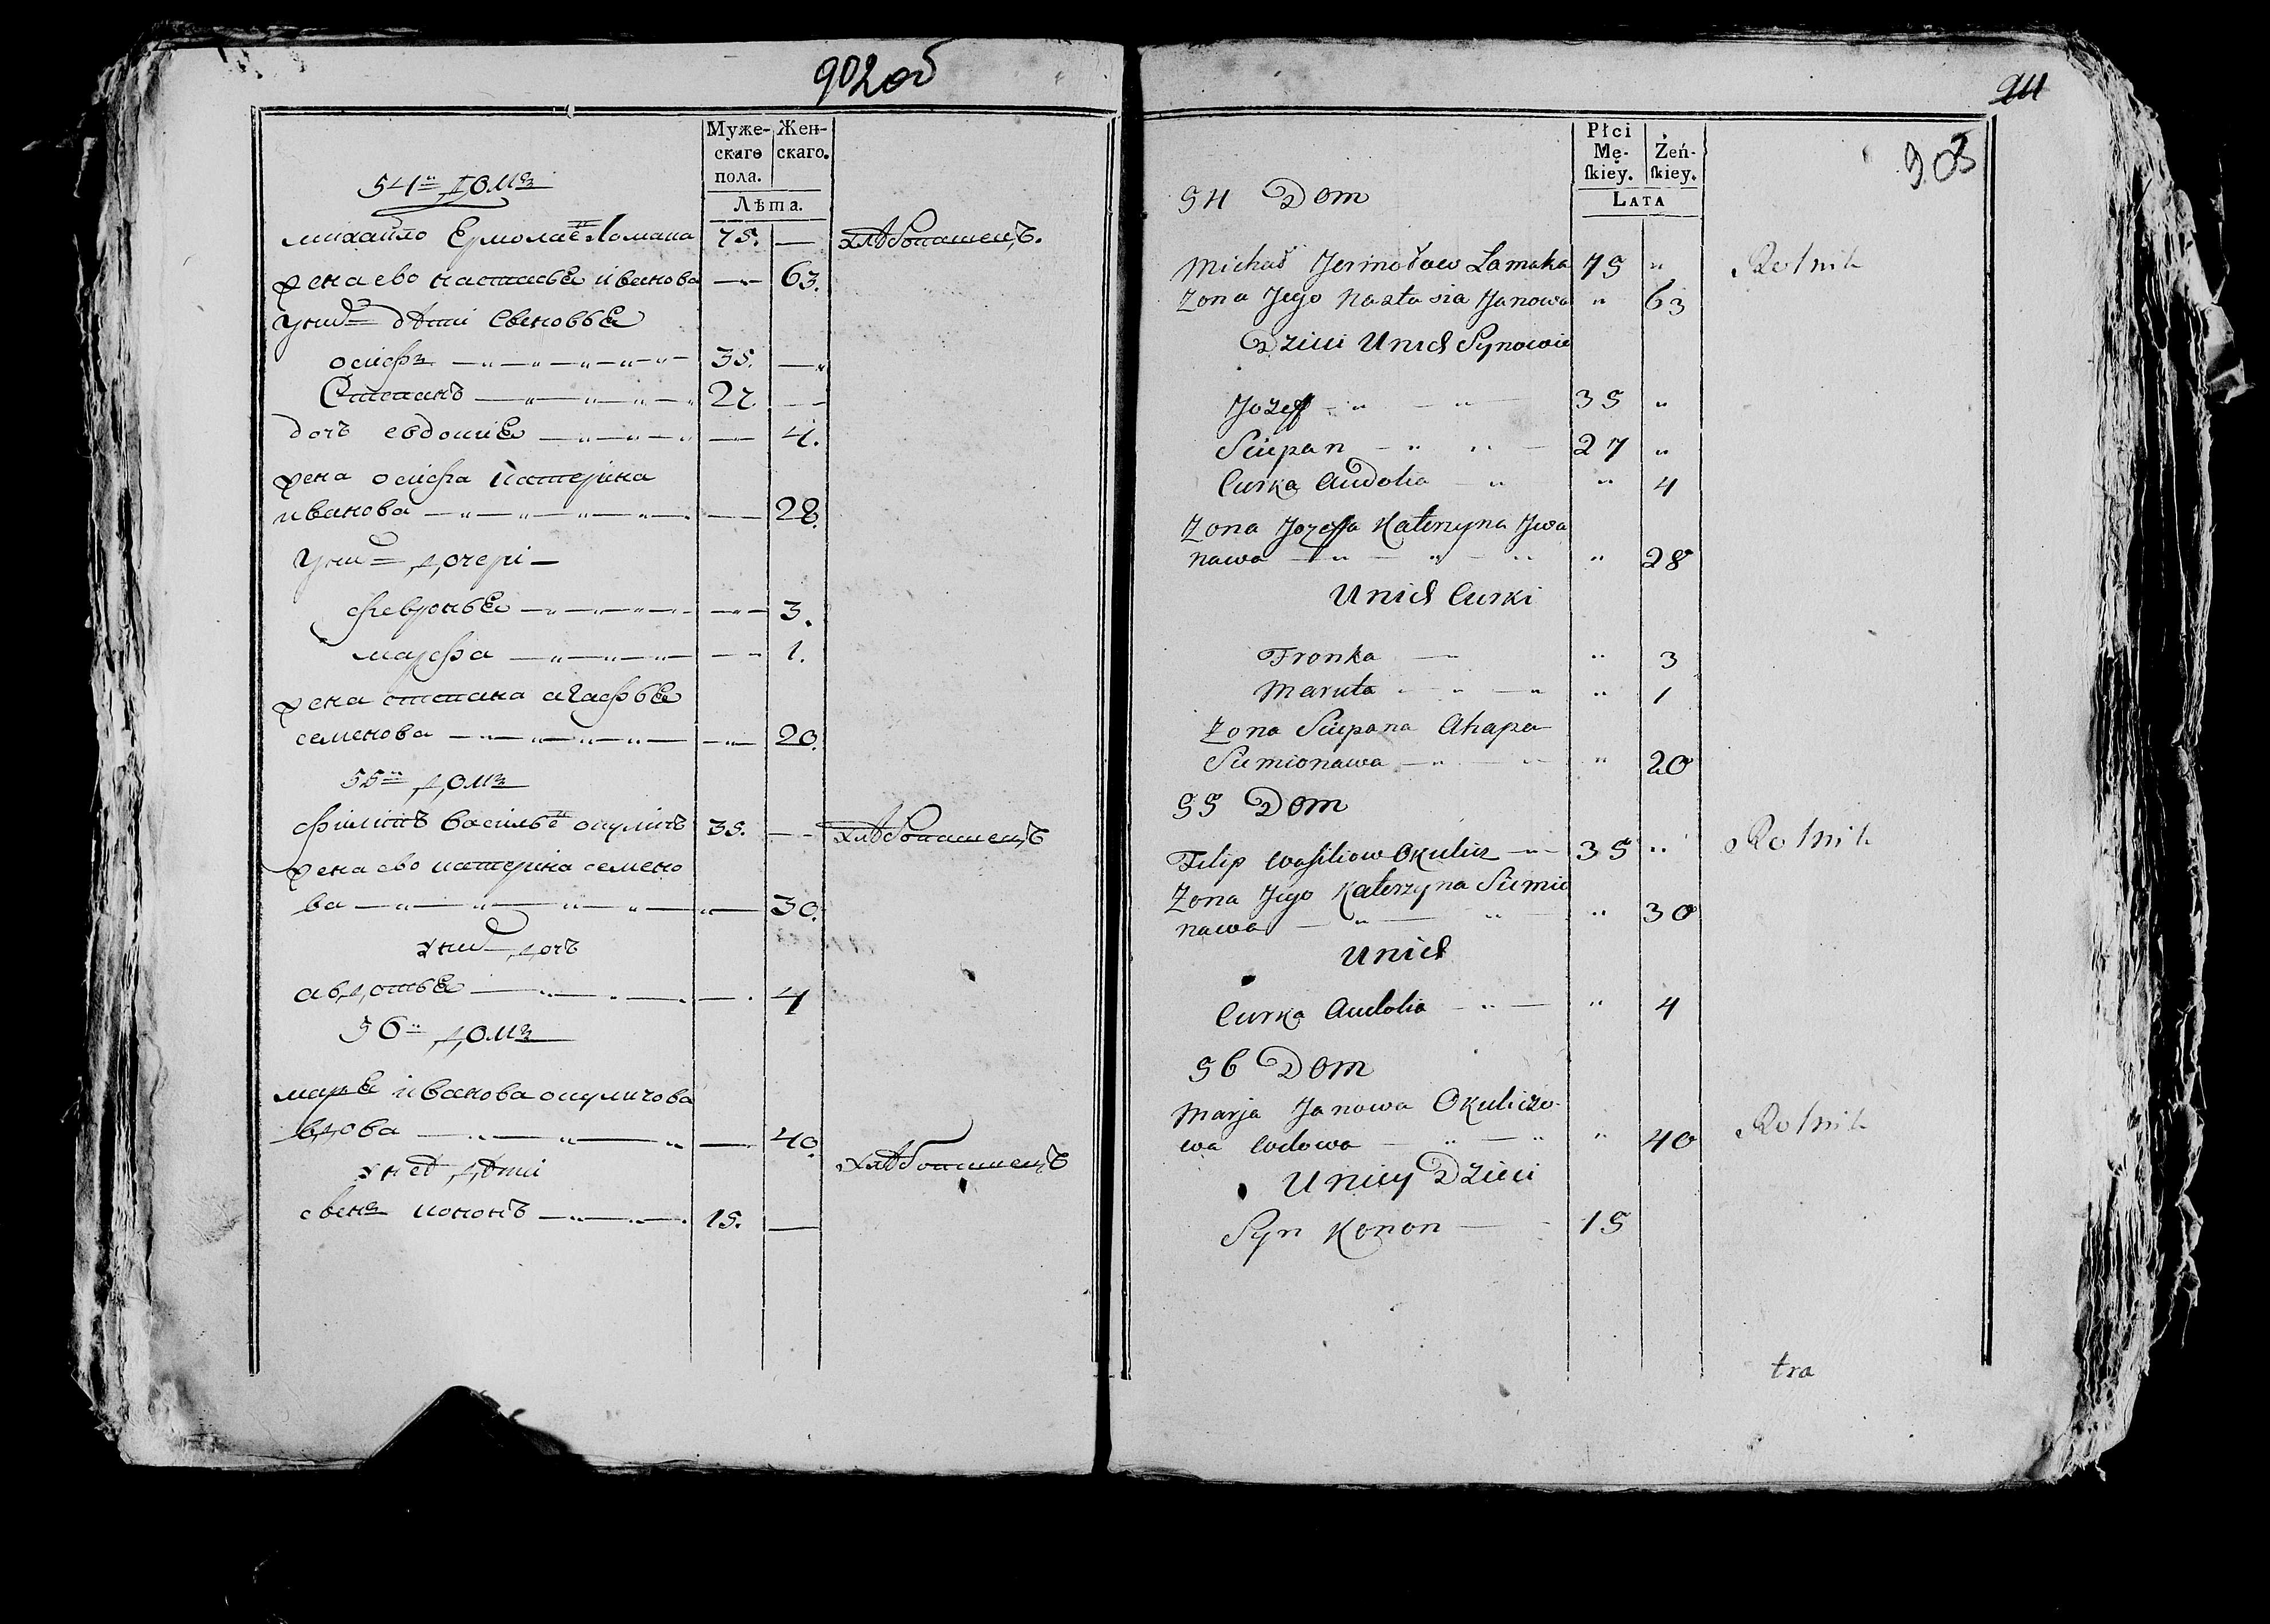 902 об
Муже- Жен-
скаго скаго.
пола.
Лѣта.
54й Домъ
михайло Ермолаев Ломака 75. — хлѣбопашецъ.
жена ево настасья иванова — 63.
уних дѣти Сыновья
осифъ — 35. —
Степанъ — 27 —
дочь евдокия — — 4.
жена осифа катерина
иванова — — 28.
уних дочери —
февронья — — 3.
марфа — — 1.
жена степана агафья
семенова — — 20.
55й домъ
филипъ васильев окуличъ 35. — хлѣбопашецъ
жена ево катерина семено
ва — — 30.
уних дочь
авдотья — — 4
56й домъ
марья иванова окуличова
вдова — — 40.
хлѣбопашецъ
унеи дѣти
сынъ кононъ — 15. —
911
903
Płci
Mę- Żeń-
ſkiey. ſkiey.
LATA
54 Dom
Michał Jermoław Łamaka 75 " Rolnik
Zona Jego Nastasia Janowa " 63
Dzieci Unich Synowie
Jozeff — " — " — 35 "
Sciepan — " " — 27 "
Curka Audotia — " " 4
Zona Jozeffa Katerzyna Jwa
nawa — " — " — " " 28
Unich Curki
Fronka — " 3
Maruta — " — " " 1
Zona Sciepana Ahapa
Siemionawa — " — " " 20
55 Dom
Filip Wasiliow Okulicz — 35 " Rolnik
Zona Jego Katerzyna Siemio
nawa — " — " — " 30
Unich
Curka Audotia — " — " 4
56 Dom
Marja Janowa Okuliczo-
wa wdowa — " — " " 40 Rolnik
Unieÿ Dzieci
Syn Konon — 15
tra